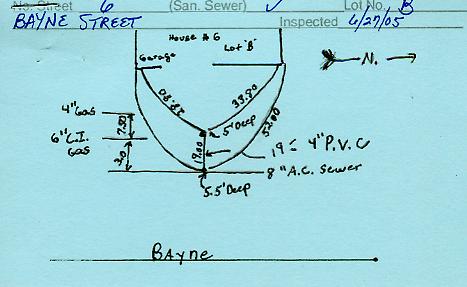 No. Street 6 (San. Sewer) ✓ Lot No. B
BAYNE STREET Inspected 6/27/05
House # 6
Garage Lot "B"
N.
39.80
52.00
4" Gas
7.50
5' Deep
6" C.I. Gas
19.00
19' ± 4" P.V.C
3.0
8" A.C. Sewer
5.5' Deep
Bayne